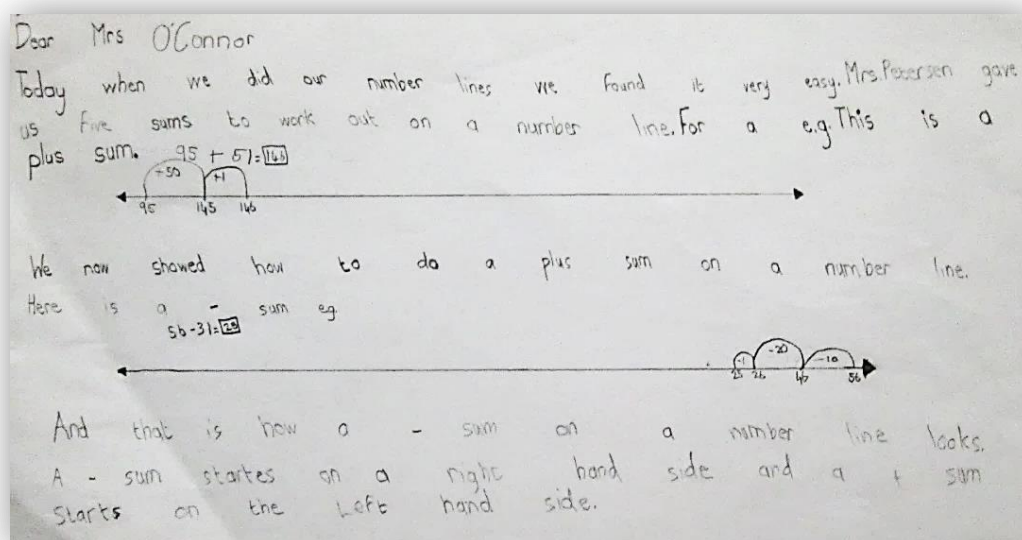 Dear Mrs O'Connor
Today when we did our number lines we found it very easy. Mrs. Petersen gave
us five sums to work out on a number line. For a e.g. This is a
plus sum. 95 + 51 = 146
+50 +1
95 145 146
We now showed how to do a plus sum on a number line.
Here is a - sum eg.
56-31=25
-1 -20 -10
25 26 56
And that is how a - sum on a number line looks.
A - sum startes on a right hand side and a + sum
starts on the Left hand side.